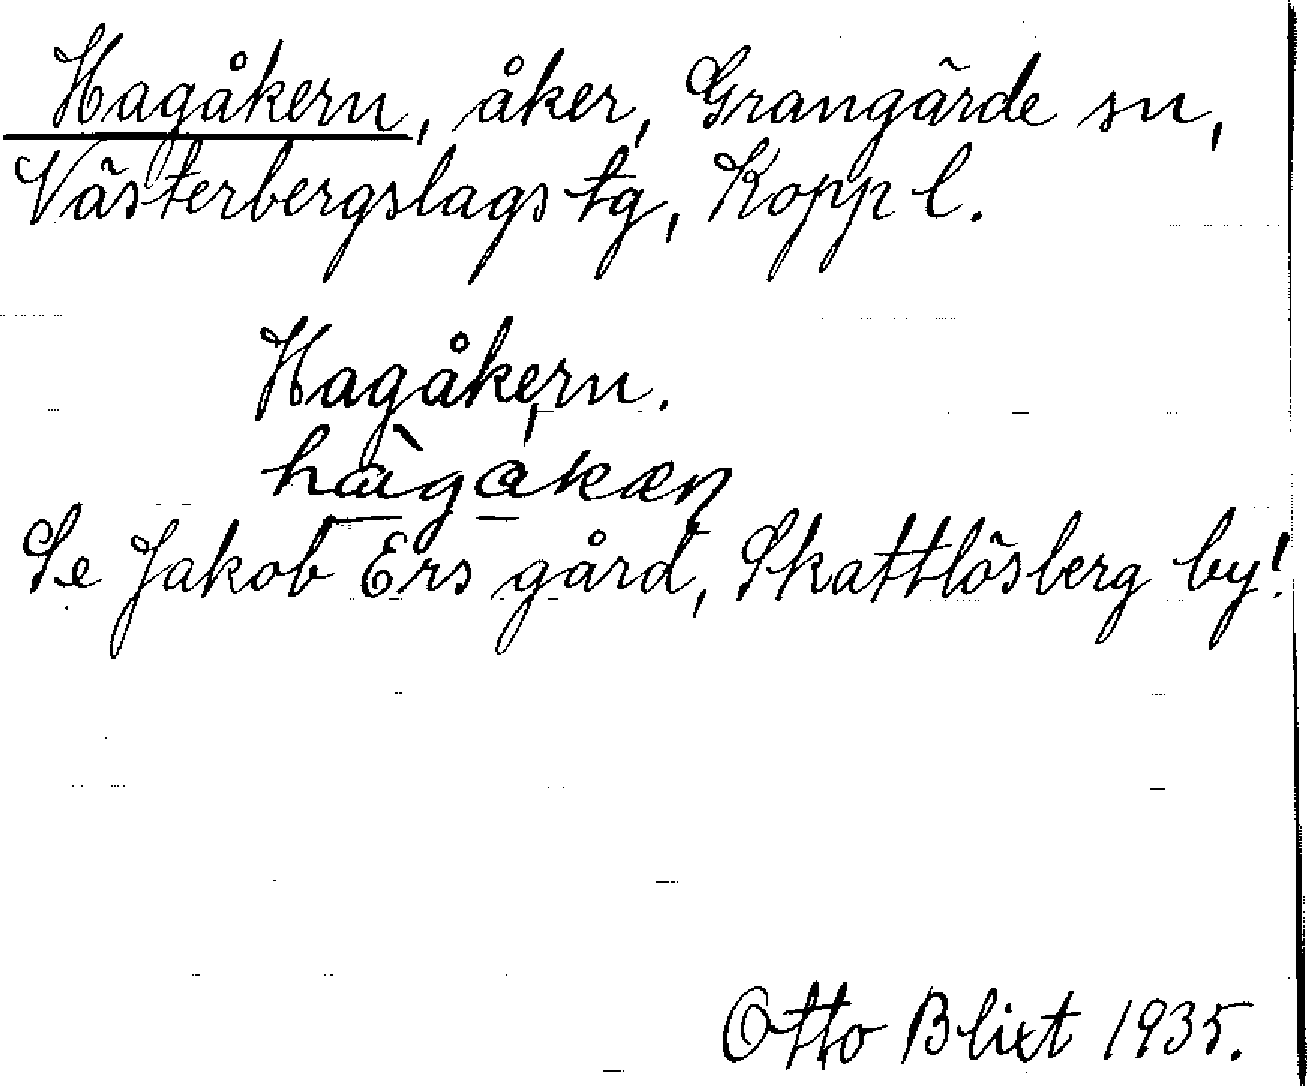 Hagåkern, åker, Grangärde sn,
Västerbergslags tg, Kopp l.
Hagåkern.
hàgåkæn
Se Jakob Ers gård, Skattlösberg by!
Otto Blixt 1935.